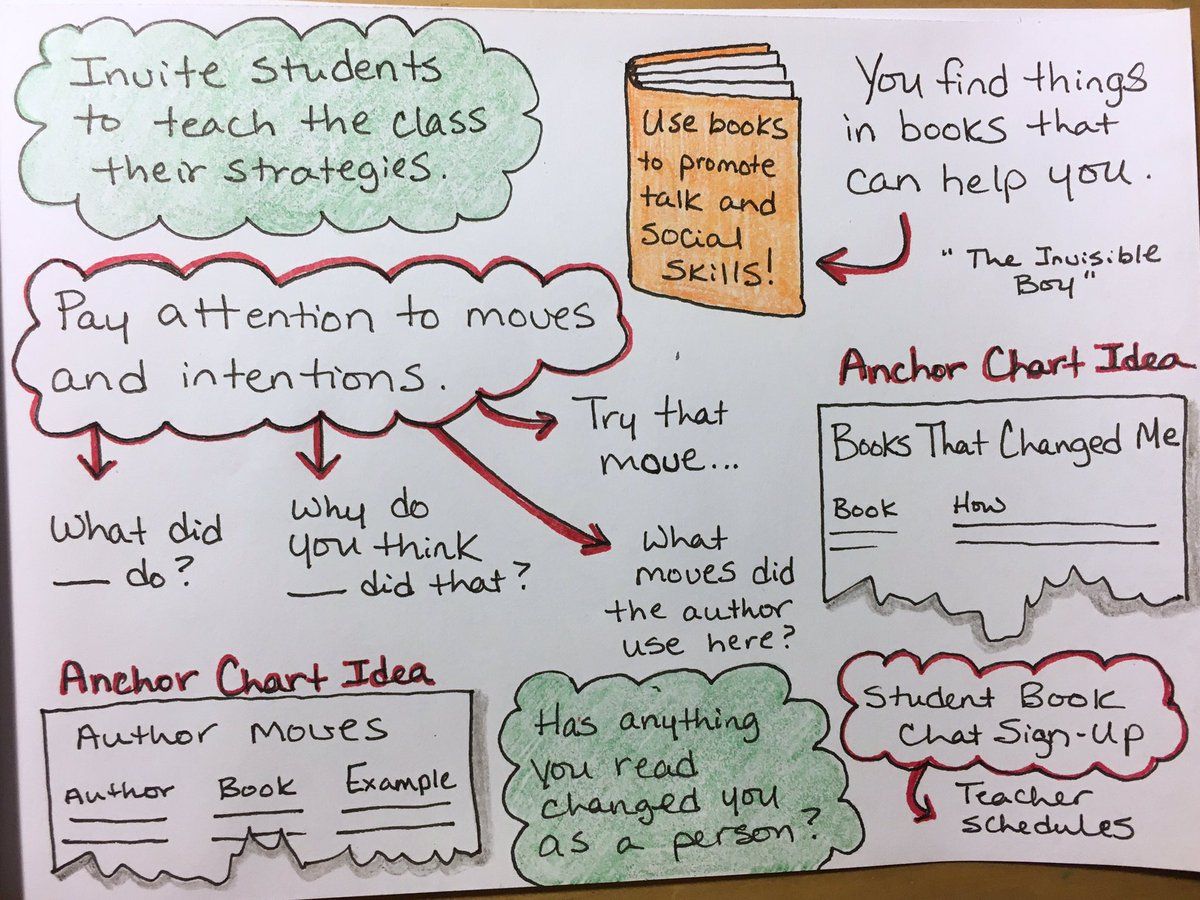 Invite students
to teach the class
their strategies.
Use books
to promote
talk and
social
skills!
You find things
in books that
can help you.
"The Invisible
Boy"
Pay attention to moves
and intentions.
What did
__ do?
Why do
you think
__ did that?
Try that
move...
What
moves did
the author
use here?
Anchor Chart Idea
Books That Changed Me
Book How
Anchor Chart Idea
Author Moves
Author Book Example
Has anything
you read
changed you
as a person?
Student Book
Chat Sign-Up
Teacher
schedules